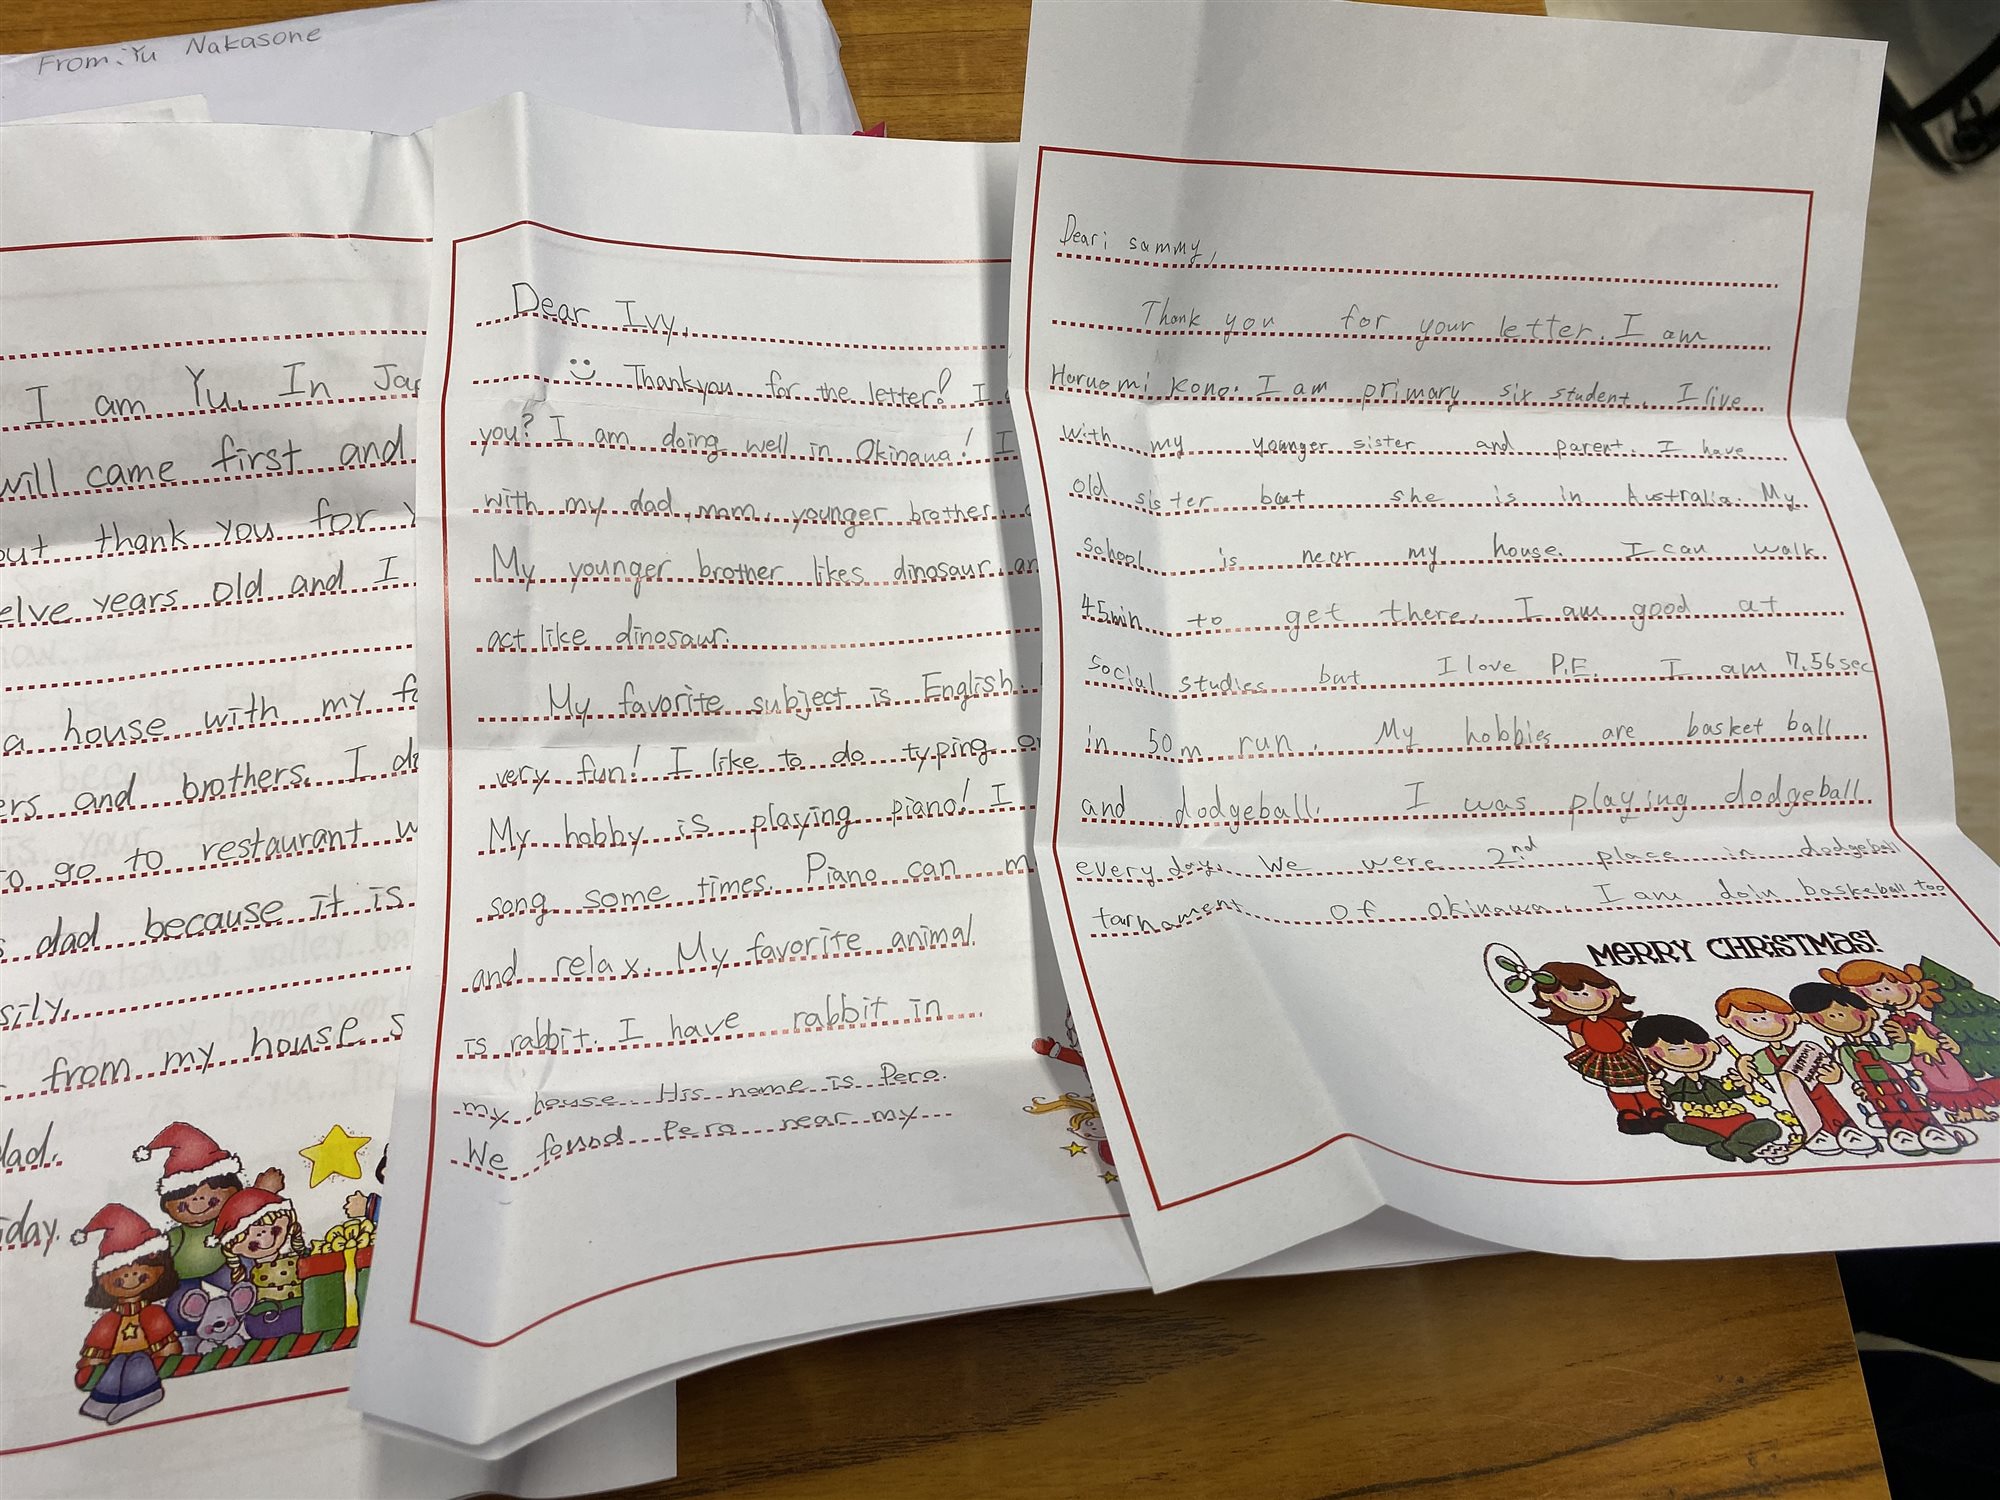 From: Yu Nakasone
I am Yu. In
will came first and
thank you for
years old and I
a house with my
and brothers. I
go to restaurant
dad because it is
from my house
Dear Ivy,
Thankyou for the letter! I
you? I am doing well in Okinawa! I
with my dad, mom, younger brother,
My younger brother likes dinosaur
act like dinosaur.
My favorite subject is English.
very fun! I like to do typing
My hobby is playing piano! I
song some times. Piano can
and relax. My favorite animal
is rabbit. I have rabbit in
my house. His name is Pero.
We found Pero near my
Dear: sammy,
Thank you for your letter. I am
Haruomi Kono. I am primary six student. I live
with my younger sister and parent. I have
old sister but she is in Australia. My
school is near my house. I can walk
45min to get there. I am good at
social studies but I love P.E. I am 7.56sec
in 50m run. My hobbies are basket ball
and dodgeball. I was playing dodgeball
every day. We were 2nd place in dodgeball
tarnament of okinawa. I am doin baskeball too
MERRY CHRISTMAS!